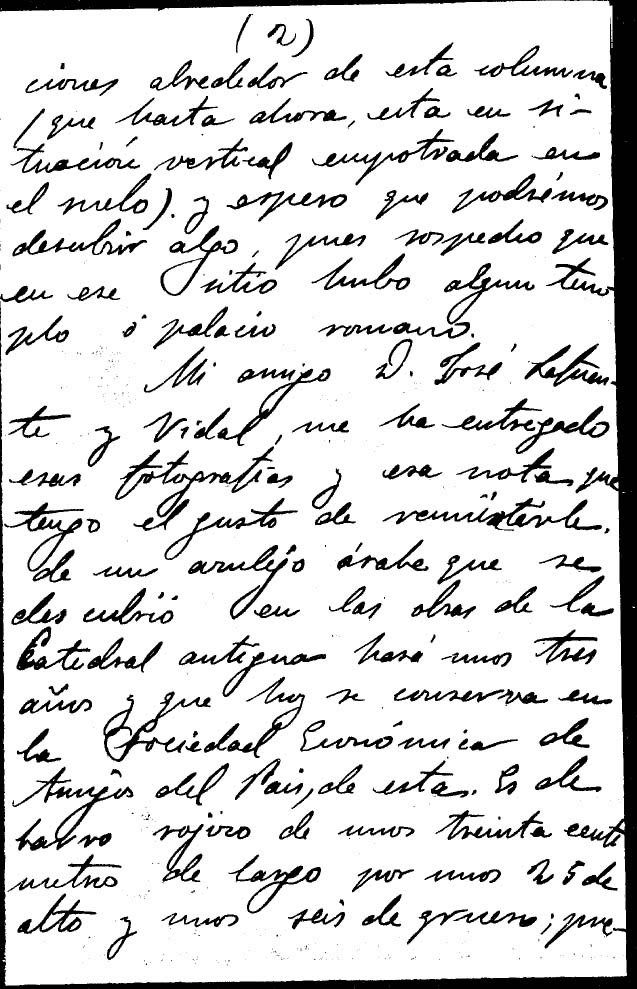 (2)
ciones alrededor de esta columna
(que hasta ahora, esta en si-
tuación vertical empotrada en
el suelo). y espero que podrémos
descubrir algo, pues sospecho que
en ese sitio hubo algun tem
plo ó palacio romano.
Mi amigo D. José Lafuen-
te y Vidal, me ha entregado
esas fotografias y esa nota que
tengo el gusto de remitirle.
de un azulejo árabe que se
descubrió en las obras de la
Catedral antigua hará unos tres
años y que hoy se conserva en
la Sociedad Económica de
Amigos del Pais, de esta. Es de
barro rojizo de unos treinta centi
metros de largo por unos 25 de
alto y unos seis de grueso; pre-